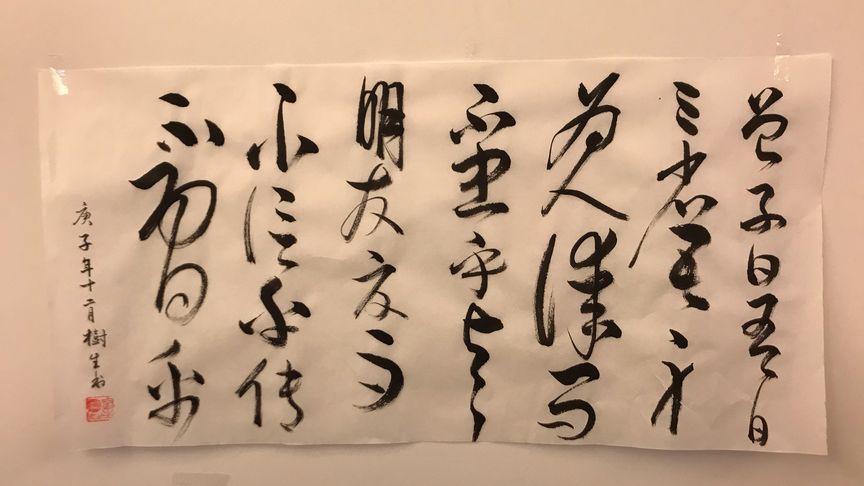 曾子曰吾日
三省吾身
为人谋而
不忠乎与
朋友交而
不信乎传
不習乎
庚子年十二月樹生书